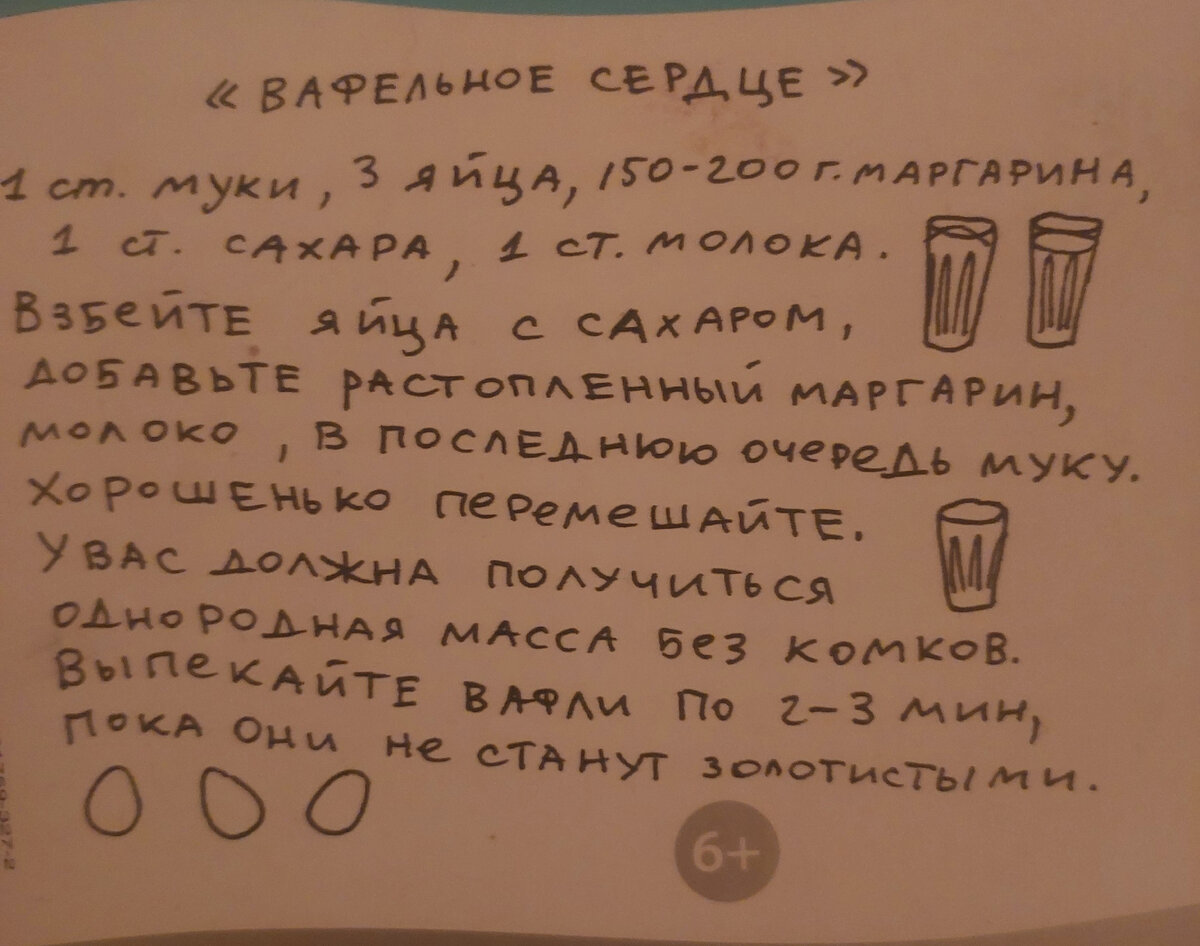 « ВАФЕЛЬНОЕ СЕРДЦЕ »
1 ст. муки, 3 яйца, 150-200 г. МАРГАРИНА,
1 ст. САХАРА, 1 ст. МОЛОКА.
Взбейте яйца с САХАРОМ,
ДОБАВЬТЕ РАСТОПЛЕННЫЙ МАРГАРИН,
МОЛОКО, В ПОСЛЕДНЮЮ ОЧЕРЕДЬ МУКУ.
ХОРОШЕНЬКО ПЕРЕМЕШАЙТЕ.
У ВАС ДОЛЖНА ПОЛУЧИТЬСЯ
ОДНОРОДНАЯ МАССА БЕЗ КОМКОВ.
ВЫПЕКАЙТЕ ВАФЛИ ПО 2-3 МИН,
ПОКА ОНИ НЕ СТАНУТ ЗОЛОТИСТЫМИ.
6+